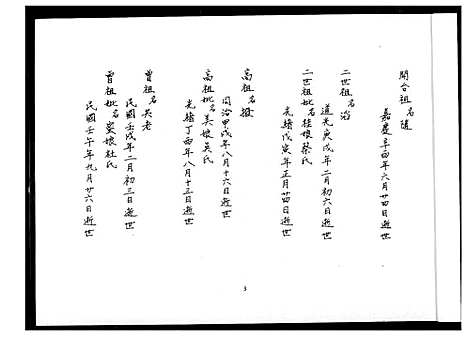 開台祖名随
嘉慶辛酉年六月廿四日逝世
二世祖名治
道光庚戌年二月初六日逝世
二世祖妣名桂娘蔡氏
光緒戊寅年正月廿四日逝世
高祖名
同治甲戌年八月十六日逝世
高祖妣名美娘吳氏
光緒丁酉年八月十三日逝世
曾祖名吳老
民國壬戌年二月初三日逝世
曾祖妣名蜜娘杜氏
民國壬午年九月廿六日逝世
3